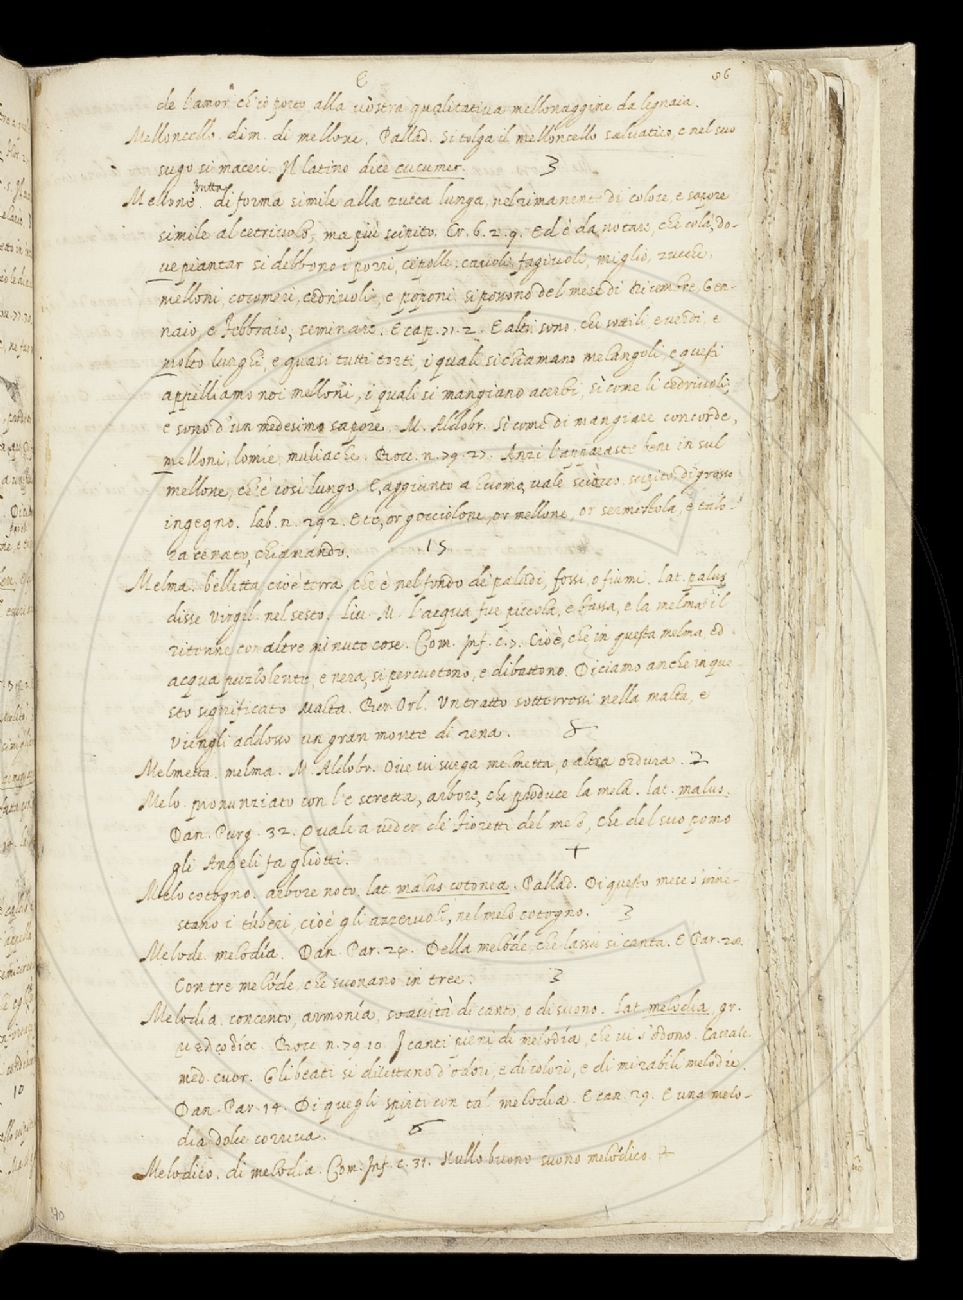 E
86
de l'amor ch'iò porto alla vostra qualitativa mellonaggine da legnaia.
Melloncello. dim. di mellone. Pallad. Si tolga il melloncello salvatico, e nel suo
sugo si maceri. Il latino dice cucumer. 3
Mellone. frutta di forma simile alla zucca lunga, nel rimanente di colore, e sapore
simile al cetriuolo, ma più scipito. Cr. 6. 2. 9. Ed è da notare, che colà, do-
ve piantar si debbono i porri, cipolle, cavoli, fagiuoli, miglio, zucche,
melloni, cocomeri, cedriuoli, e poponi si possono del mese di Dicembre, Gen-
naio, e Febbraio, seminare. E cap. 71. 2. E altri sono, che sottili, e verdi, e
molto lunghi, e quasi tutti torti, i quali si chiamano melangoli, e questi
appelliamo noi melloni, i quali si mangiano acerbi, sì come li cedriuoli,
e sono d'un medesimo sapore. M. Aldobr. Sì come di mangiare concorde,
melloni, lomie, muliache. Bocc. n. 79. 27. Anzi l'apparaste bene in sul
mellone, ch'è così lungo. E, aggiunto a huomo, vale sciocco, scipito, di grosso
ingegno. lab. n. 292. Etc, or gocciolone, or mellone, or ser mestola, e talo-
ra cenato, chiamando. 15
Melma. belletta cioè terra, che è nel fondo de' paludi, fossi, o fiumi. lat. palus
disse Virgil. nel sesto. Liv. M. l'acqua fue piccola, e bassa, e la melma il
ritenne con altre minute cose. Com. Inf. c. 7. Cioè, che in questa melma, ed
acqua puzzolente, e nera, si percuotono, e dibattono. Diciamo anche in que-
sto significato Malta. Bern Orl. Un tratto sotterrossi nella malta, e
viengli addosso un gran monte di rena. 8
Melmetta. melma. M. Aldobr. Ove vi svega melmetta, o altra ordura. 2
Melo. pronunziato con l'e stretta, arbore, che produce la mela. lat. malus.
Dan. Purg. 32. Quale a veder de' fioretti del melo, che del suo pomo
gli Angeli fa ghiotti. +
Melo cotogno. arbore noto, lat. malus cotonea. Pallad. Di questo mese s'inne-
stano i tuberi, cioè gli azzeruoli, nel melo cotogno. 3
Melode. melodia. Dan. Par. 24. Della melóde, che lassù si canta. E Par. 28.
Con tre melóde, che suonano in tree. 3
Melodia. concento, armonía, soavità di canto, o di suono. lat. melodia, gr.
Bocc. n. 79. 10. I canti pieni di melodía, che vi s'odono.
med. cuor. Gli beati si dilettano d'odori, e di colori, e di mirabili melodíe.
Dan. Par. 14. Di quegli spirti con tal melodia. E can. 29. E una melo-
dia dolce correva. 6
Melodico. di melodia. Com. Inf. c. 31. Nullo buono suono melódico. 2